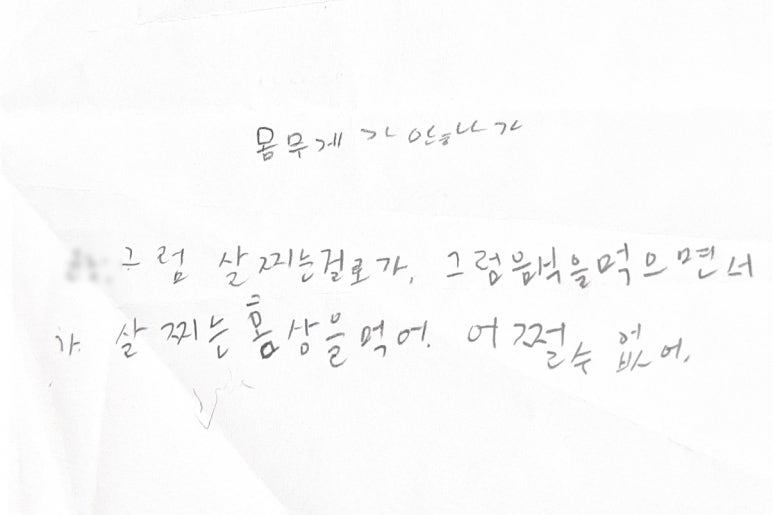 몸무게 가 안늘나 가
그럼 살 찌는걸로가. 그럼음식을먹으면서
가. 살 찌는 홈 상을먹어. 어쩔수 없어.